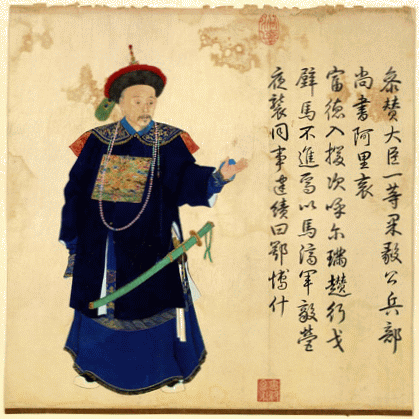 叅贊大臣一等果毅公兵部
尚書阿里衮
富德入援次呼尔璊趲行戈
壁馬不進焉以馬濟軍敵營
夜襲同事建績曰鄂博什